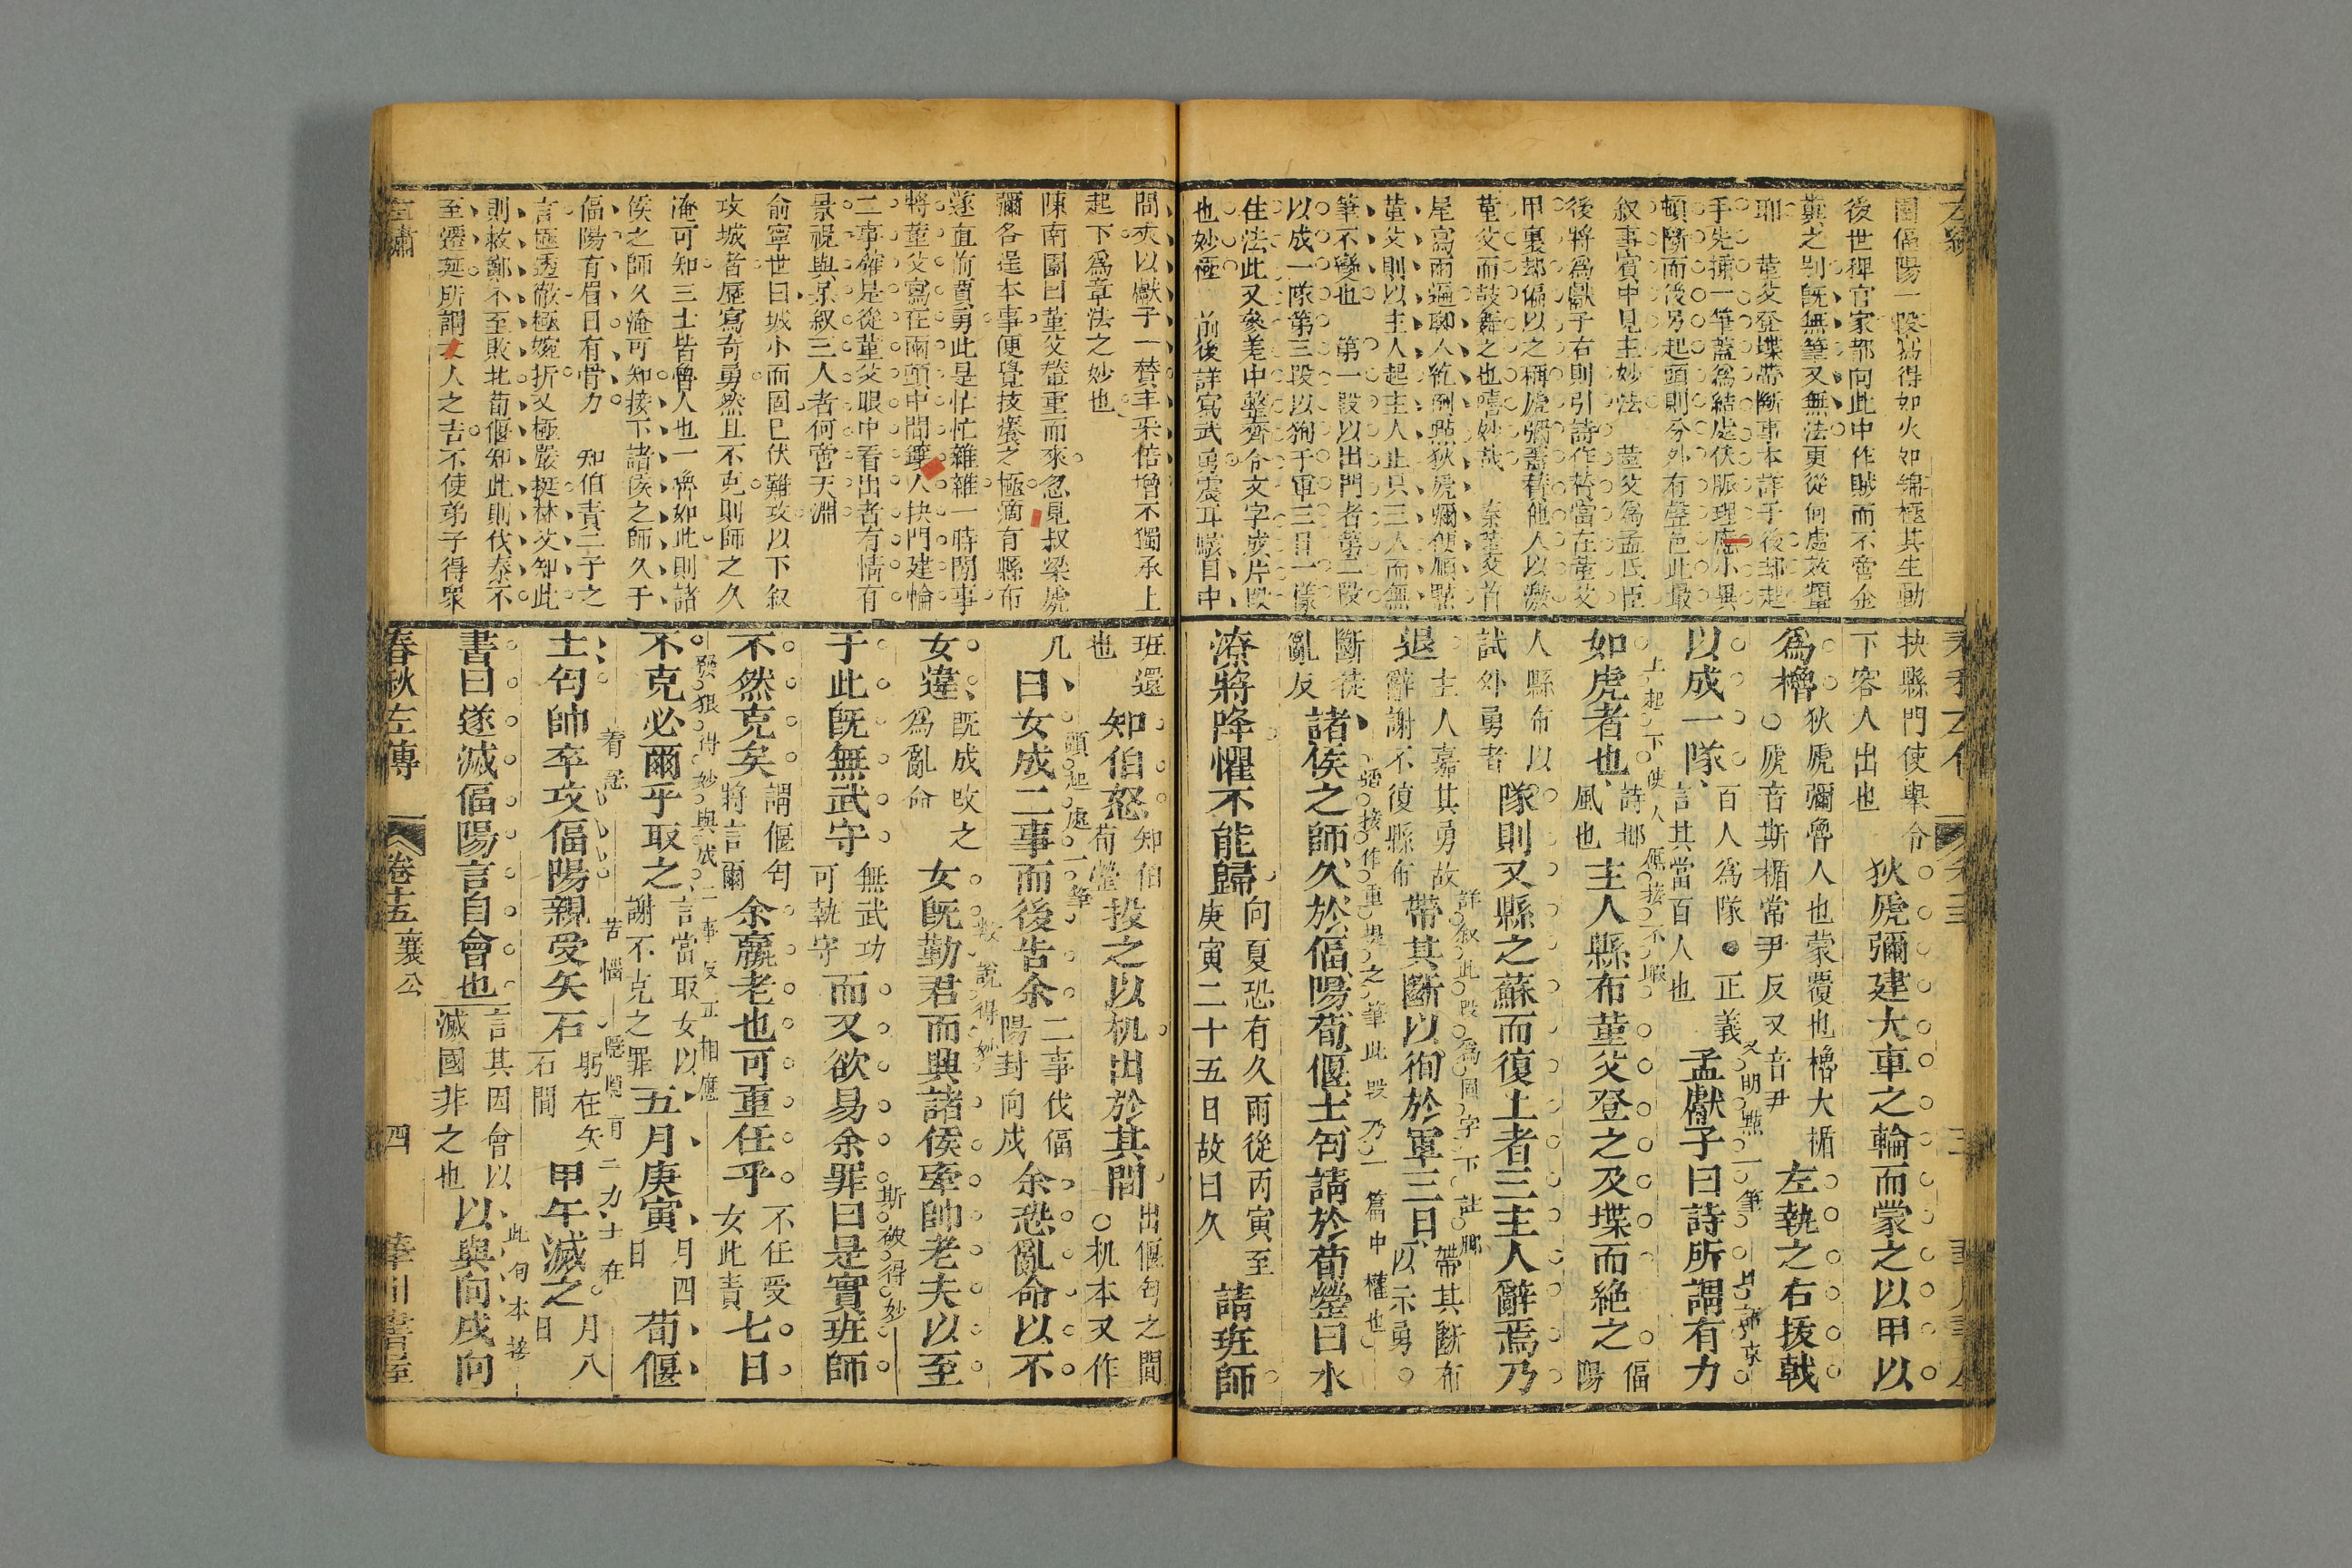 圍偪陽一段寫得如火如錦極其生動
後世稗官家都向此中作賊而不啻金
糞之別旣無筆又無法更從何處效顰
耶　堇父登堞帶斷事本詳于後却起
手先擒一筆蓋爲結處伏脈理應小異
頓斷而後另起頭則分外有聲色此最
叙事賓中見主妙法　堇父爲孟氏臣
後將爲獻子右則引詩作贊當在堇父
甲裏却偏以之稱虎彌蓋替他人以激
堇父而鼓舞之也嘻妙哉　秦堇父首
尾寫兩遍聊人紇倒點狄虎彌便順點
堇父則以主人起主人止只三人而無
筆不變也　第一段以出門者第二段
以成一隊第三段以狥于軍三日一樣
住法此又參差中整齊令文字成片段
也妙極　前後詳寫武勇震耳駭目中
抉縣門使舉令
下容人出也
狄虎彌建大車之輪而蒙之以甲以
爲櫓
○狄虎彌魯人也蒙覆也櫓大楯
虎音斯楯常尹反又音尹
左執之右拔戟
以成一隊
百人爲隊●正義
言其當百人也
又明點一筆
孟獻子曰詩所謂有力
如虎者也
詩邶
風也
上起下使人
應接不暇
主人縣布堇父登之及堞而絶之
偪
陽
人縣布以
試外勇者
隊則又縣之蘇而復上者三主人辭焉乃
退
主人嘉其勇故
辭謝不復縣布
詳叙此段爲國字下註脚
帶其斷以徇於軍三日
帶其斷布
以示勇
斷徒
亂反
諸侯之師久於偪陽荀偃士匄請於荀罃曰水
遥接作重提之筆此段乃一篇中權也
潦將降懼不能歸
向夏恐有久雨從丙寅至
庚寅二十五日故曰久
請班師
間夾以獻子一贊丰采倍增不獨承上
起下爲章法之妙也
陳南園曰堇父輦重而來忽見叔梁虎
彌各逞本事便覺技癢之極滴有縣布
遂直前賈勇此是忙忙雜雜一時閒事
將堇父寫在兩頭中間鑲人抉門建輪
二事確是從堇父眼中看出者有情有
景視與呆叙三人者何啻天淵
俞寧世曰城小而固已伏難攻以下叙
攻城者歷寫奇勇然且不克則師之久
淹可知三士皆魯人也一魯如此則諸
侯之師久淹可知接下諸侯之師久于
偪陽有眉目有骨力　知伯責二子之
言極透徹極婉折又極嚴挺林父知此
則救鄭不至敗北荀偃知此則伐秦不
至遷延所謂丈人之吉不使弟子得衆
班還
也
知伯怒
知伯
荀罃
投之以机出於其間
出偃匄之間
○机本又作
几
曰女成二事而後告余
頭起處一筆
二事伐偪
陽封向戌
余恐亂命以不
女違
旣成改之
爲亂命
女旣勤君而興諸侯牽帥老夫以至
數說得妙
于此旣無武守
無武功
可執守
而又欲易余罪曰是實班師
斯破得妙
不然克矣
謂偃匄
將言爾
余羸老也可重任乎
不任受
女此責
七日
不克必爾乎取之
言當取女以
謝不克之罪
發狠得妙與成二事反正相應
五月庚寅
月四
日
荀偃
士匄帥卒攻偪陽親受矢石
躬在矢
石間
着急　苦惱
甲午滅之
月八
日
書曰遂滅偪陽言自會也
言其因會以
滅國非之也
以與向戌向
春秋左傳
卷十五
襄公
四
華川書屋